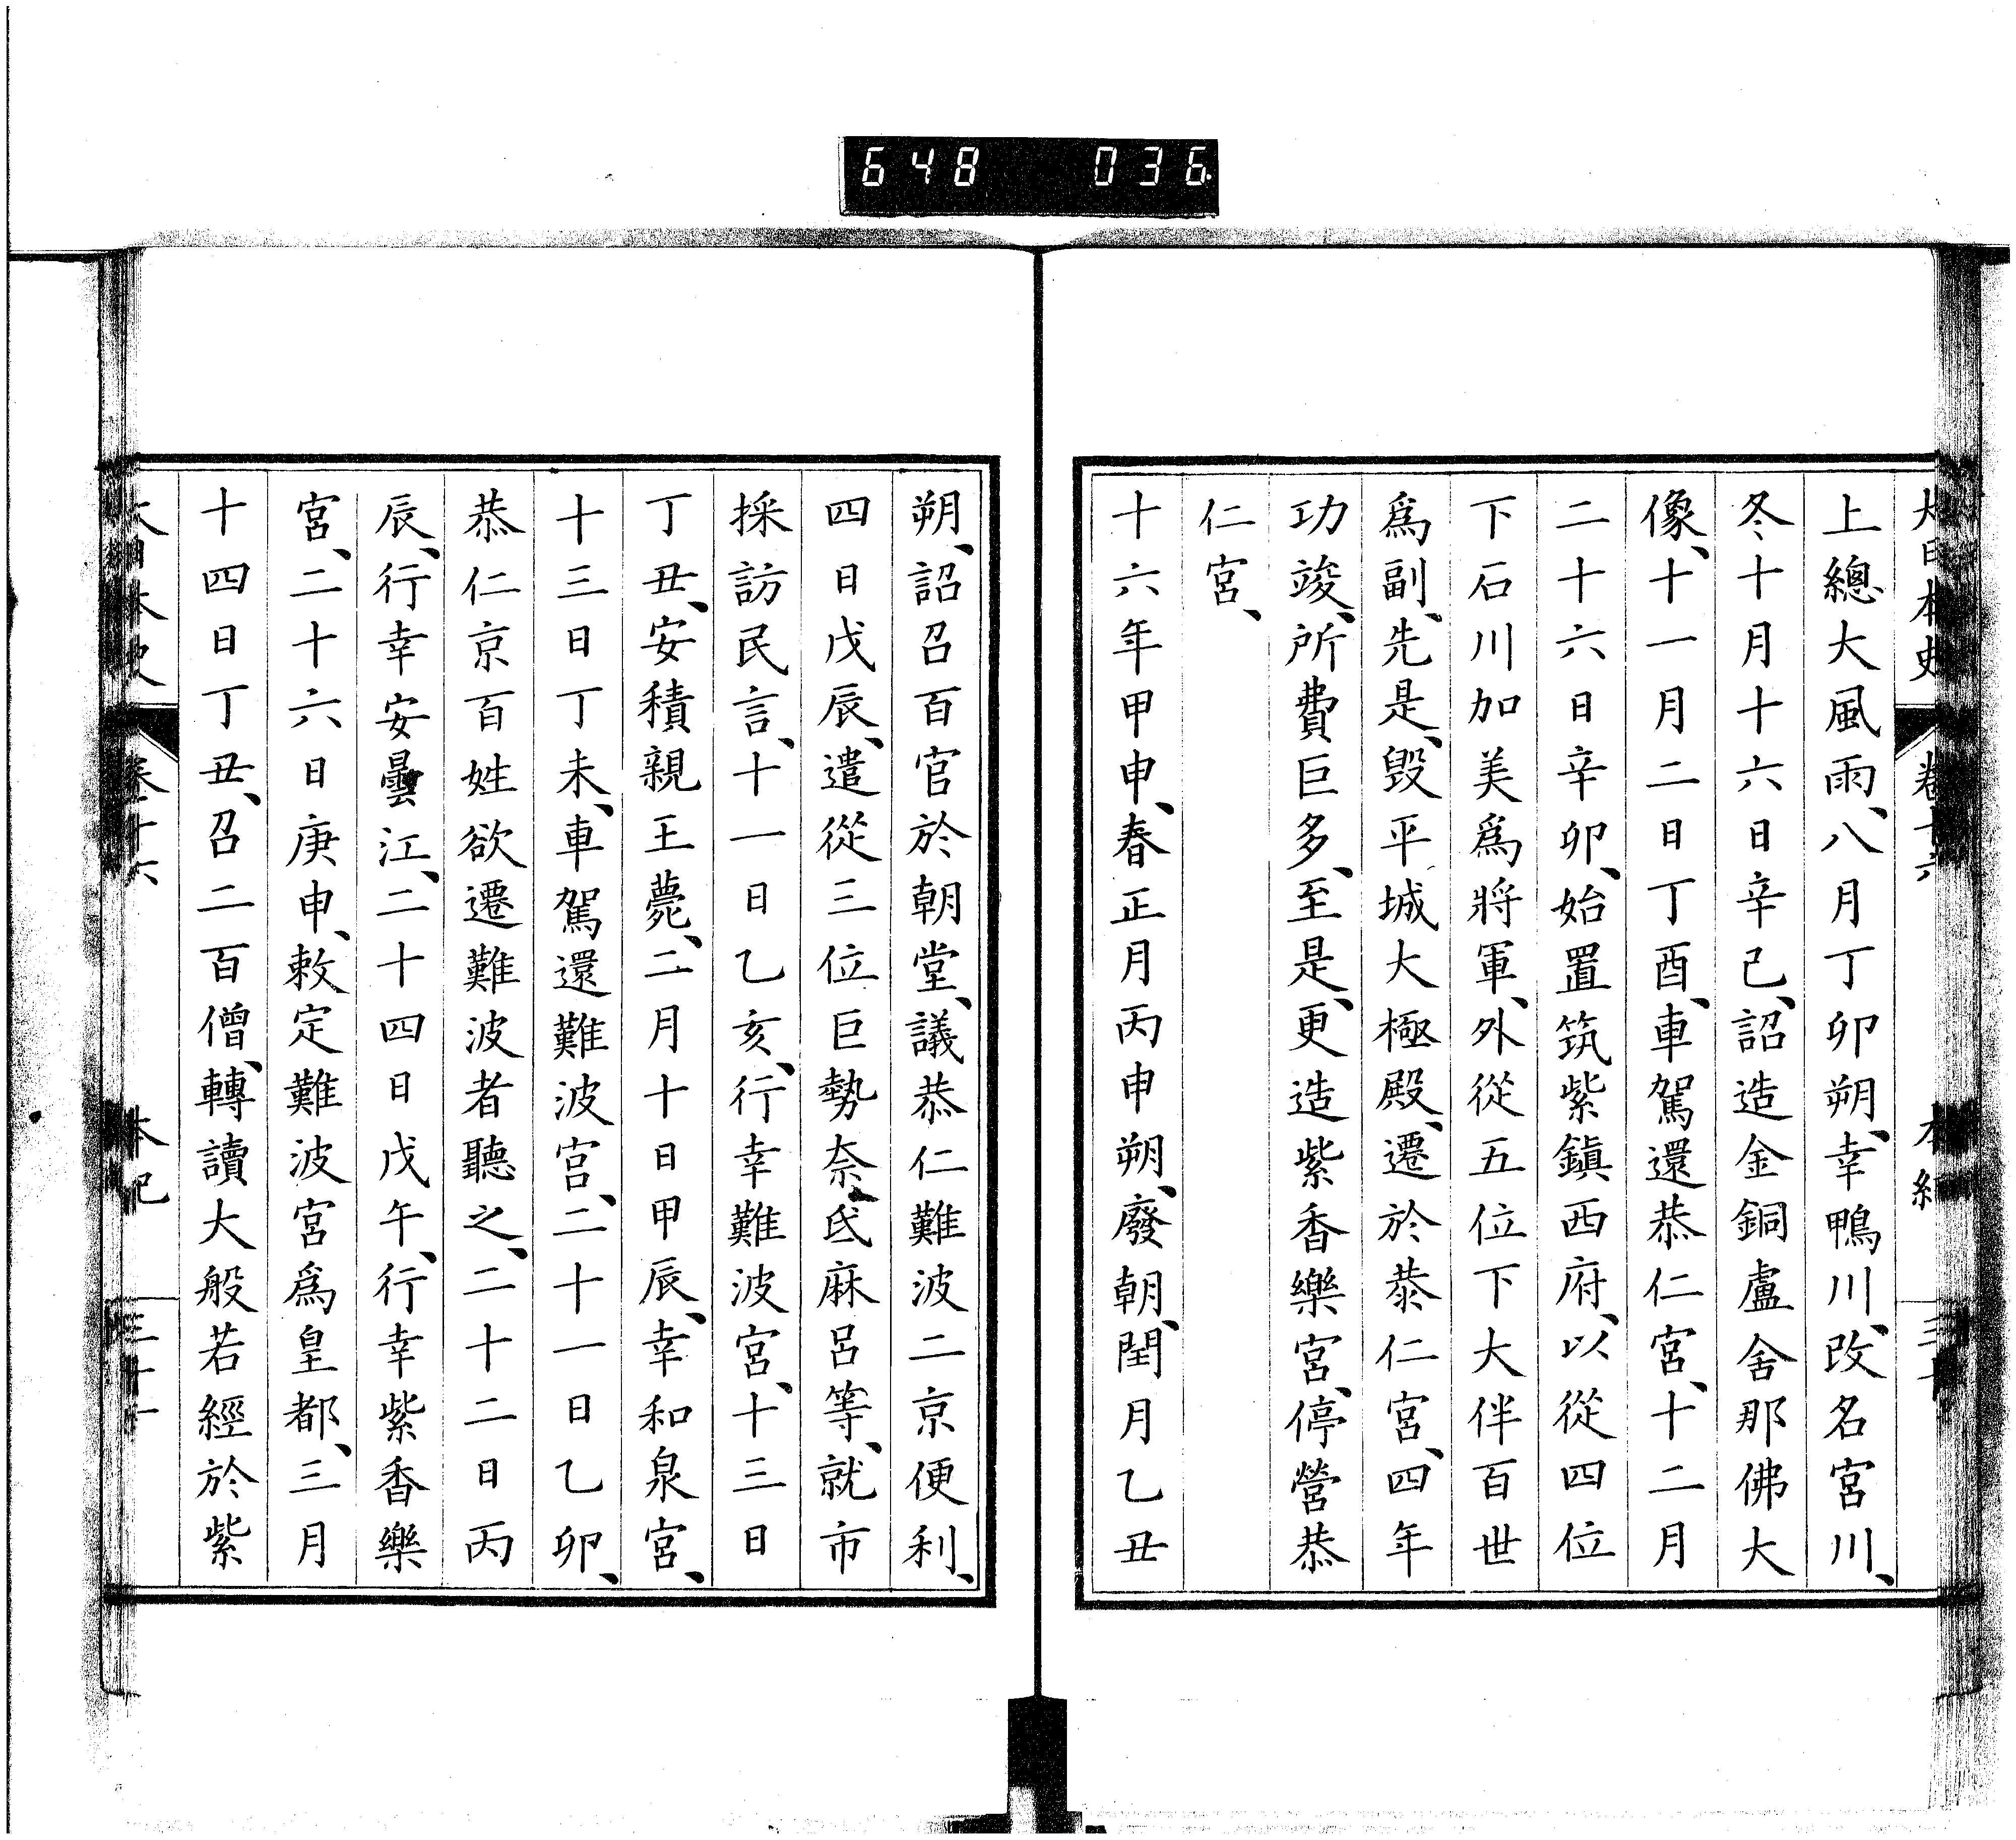 648 036
大日本史 卷十六 本紀 三十
上總大風雨、八月丁卯朔、幸鴨川、改名宮川、
冬十月十六日辛巳、詔造金銅盧舍那佛大
像、十一月二日丁酉、車駕還恭仁宮、十二月
二十六日辛卯、始置筑紫鎭西府、以從四位
下石川加美爲將軍、外從五位下大伴百世
爲副、先是、毀平城大極殿、遷於恭仁宮、四年
功竣、所費巨多、至是、更造紫香樂宮、停營恭
仁宮、
十六年甲申、春正月丙申朔、廢朝、閏月乙丑
朔、詔召百官於朝堂、議恭仁難波二京便利、
四日戊辰、遣從三位巨勢奈氐麻呂等、就市
採訪民言、十一日乙亥、行幸難波宮、十三日
丁丑、安積親王薨、二月十日甲辰、幸和泉宮、
十三日丁未、車駕還難波宮、二十一日乙卯、
恭仁京百姓欲遷難波者聽之、二十二日丙
辰、行幸安曇江、二十四日戊午、行幸紫香樂
宮、二十六日庚申、敕定難波宮爲皇都、三月
十四日丁丑、召二百僧、轉讀大般若經於紫
大日本史 卷十六 本紀 三十一